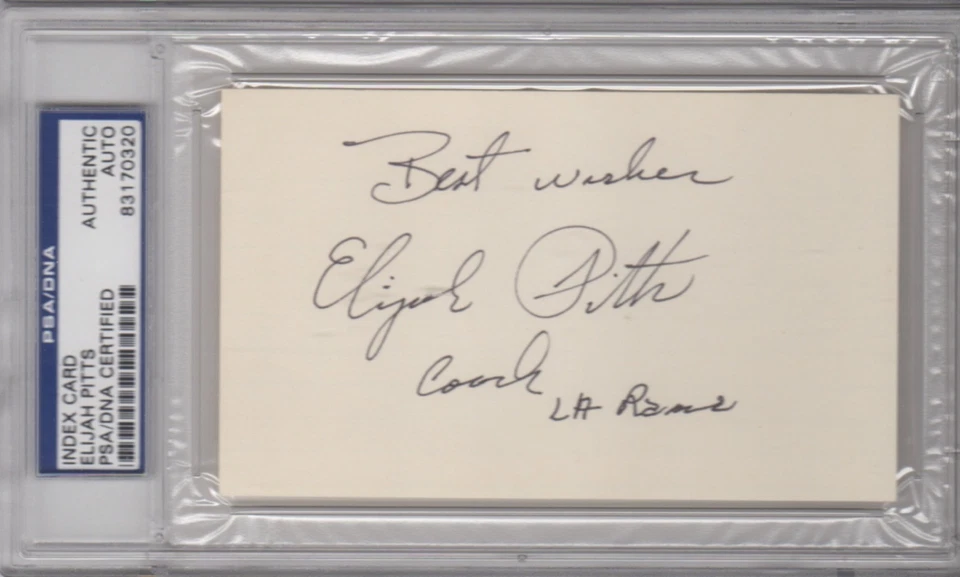 PSA/DNA
INDEX CARD
ELIJAH PITTS
PSA/DNA CERTIFIED
AUTHENTIC
AUTO
83170320
Best wishes
Elijah Pitts
Coach
LA Rams